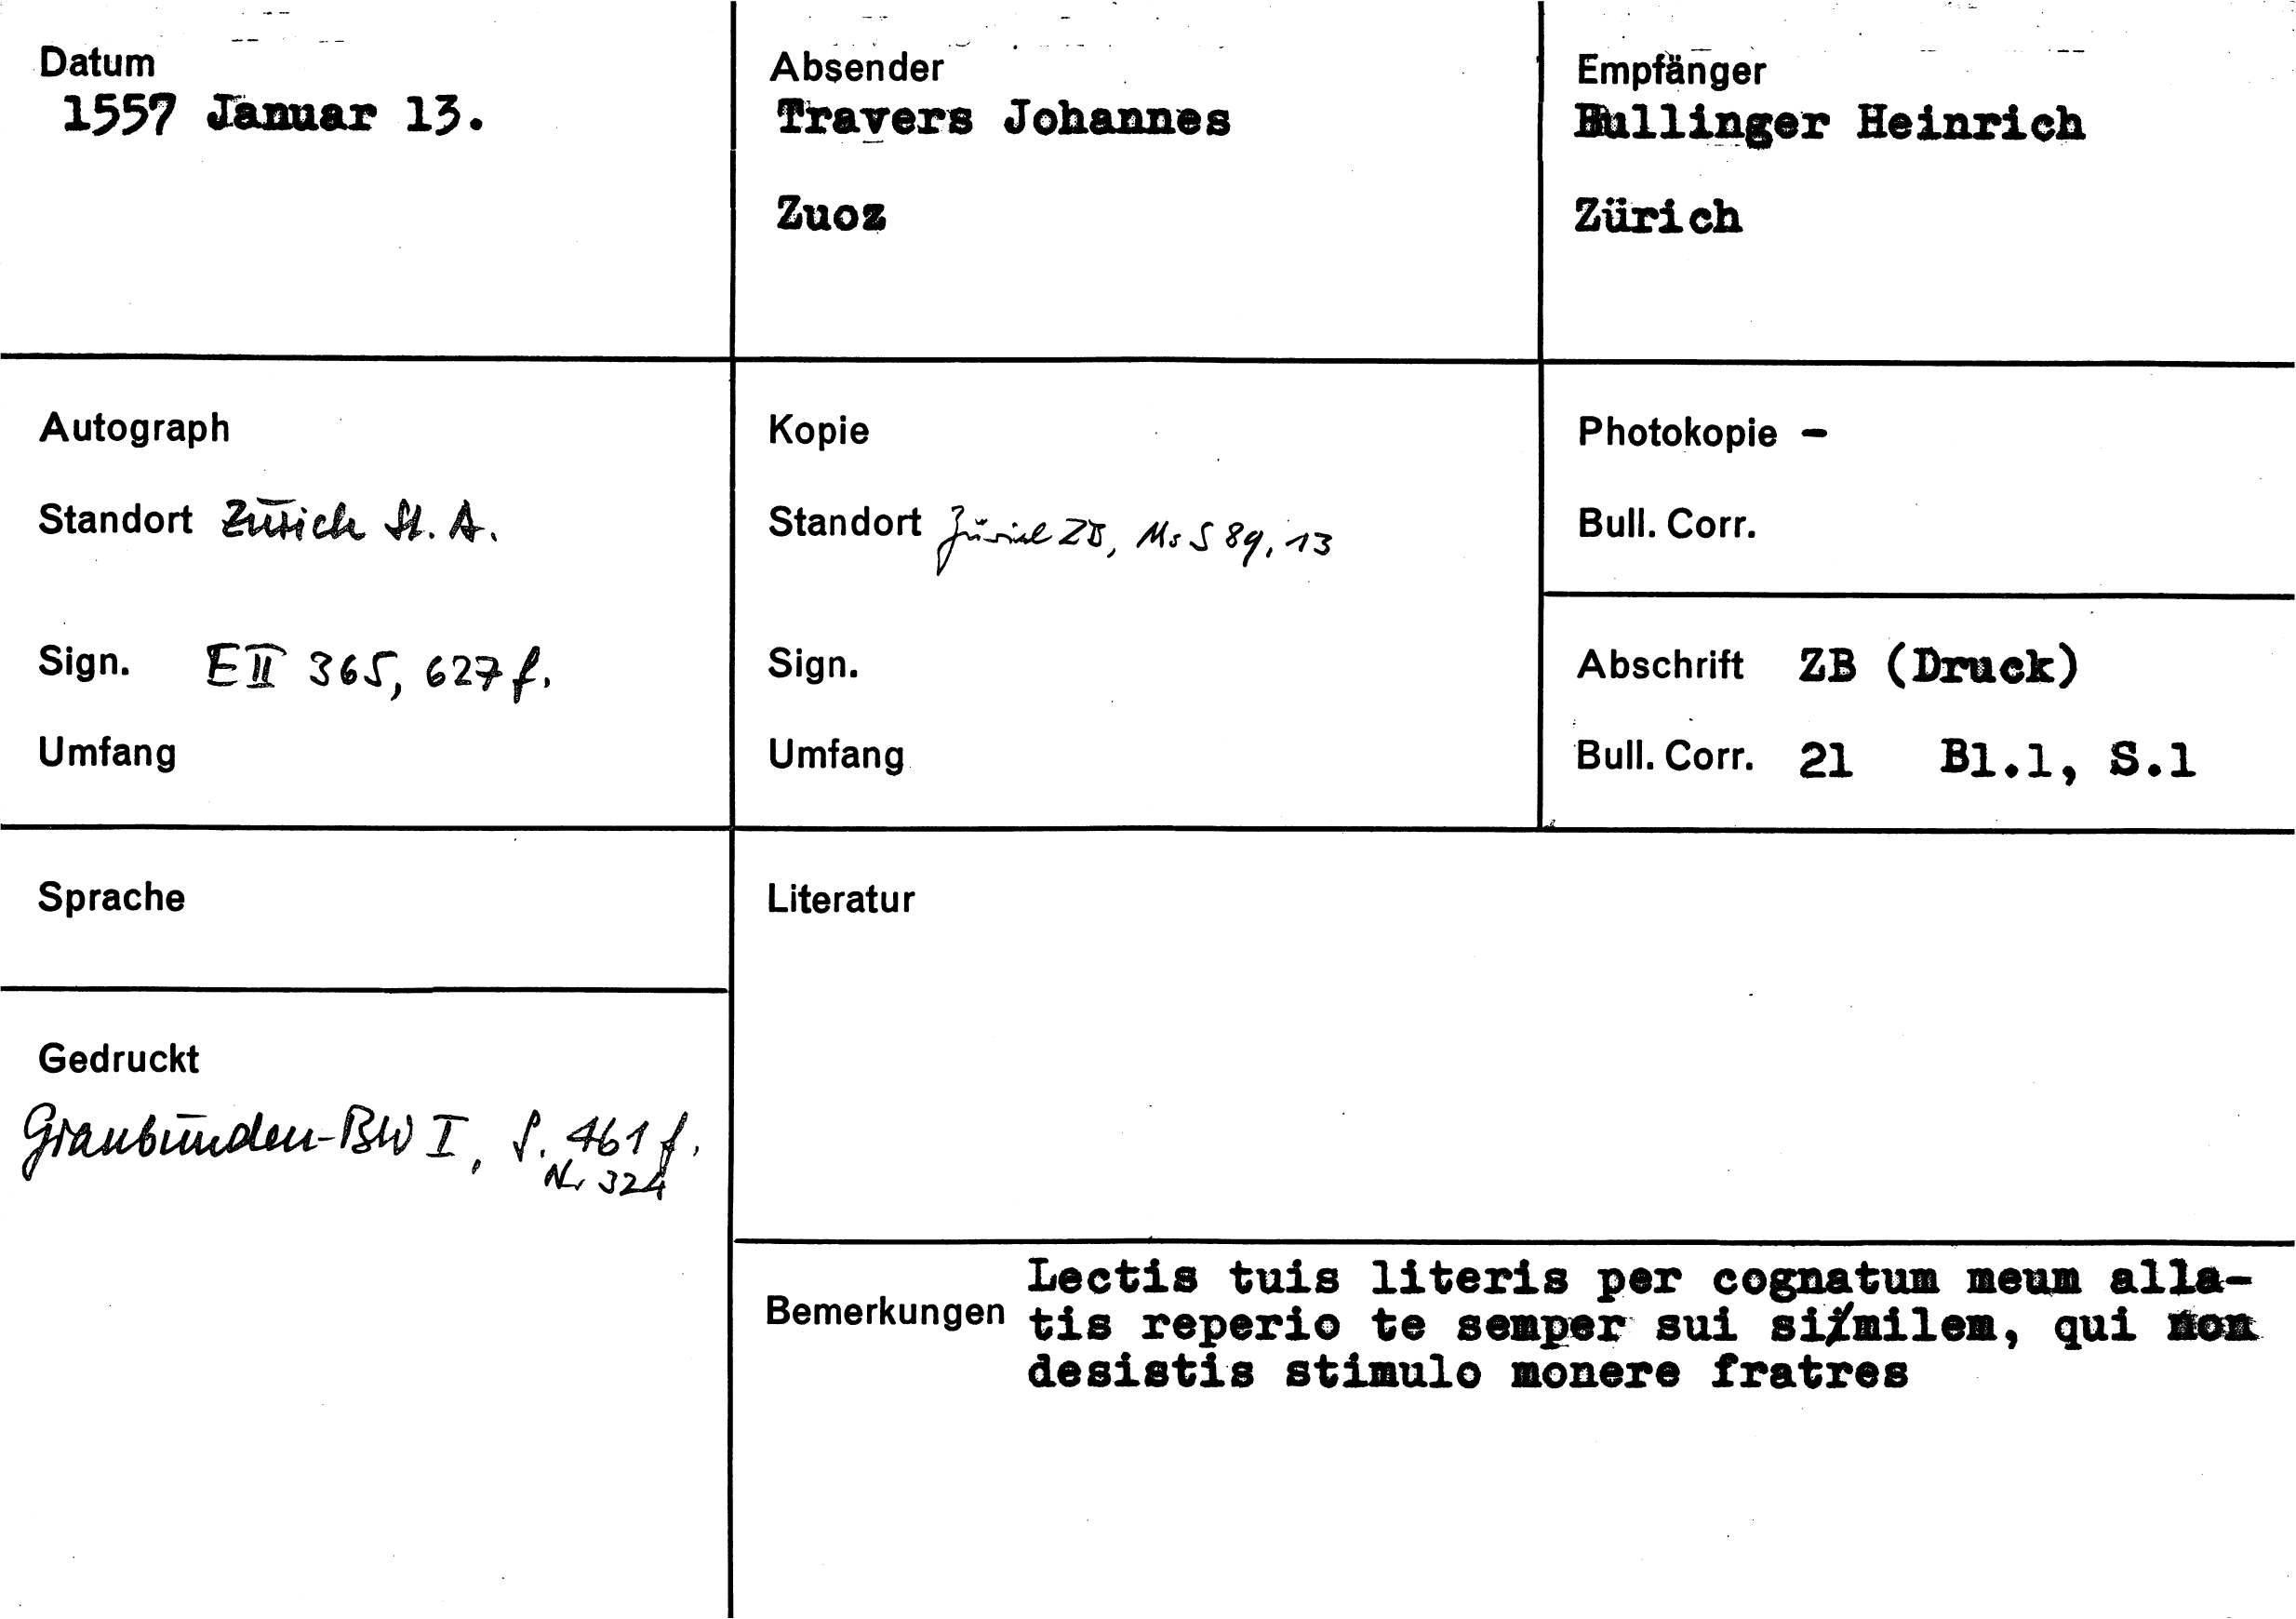 Datum
1557 Januar 13.
Absender
Travers Johannes
Zuoz
Empfänger
Bullinger Heinrich
Zürich
Autograph
Standort Zürich St. A.
Sign. E II 365, 627 f.
Umfang
Kopie
Standort Zürich ZB, Ms S 89, 13
Sign.
Umfang
Photokopie –
Bull. Corr.
Abschrift ZB (Druck)
Bull. Corr. 21 Bl.1, S.1
Sprache
Gedruckt
Graubünden-BW I, S. 461 f.
Nr 324
Literatur
Bemerkungen
Lectis tuis literis per cognatum meum alla-
tis reperio te semper sui similem, qui non
desistis stimulo monere fratres